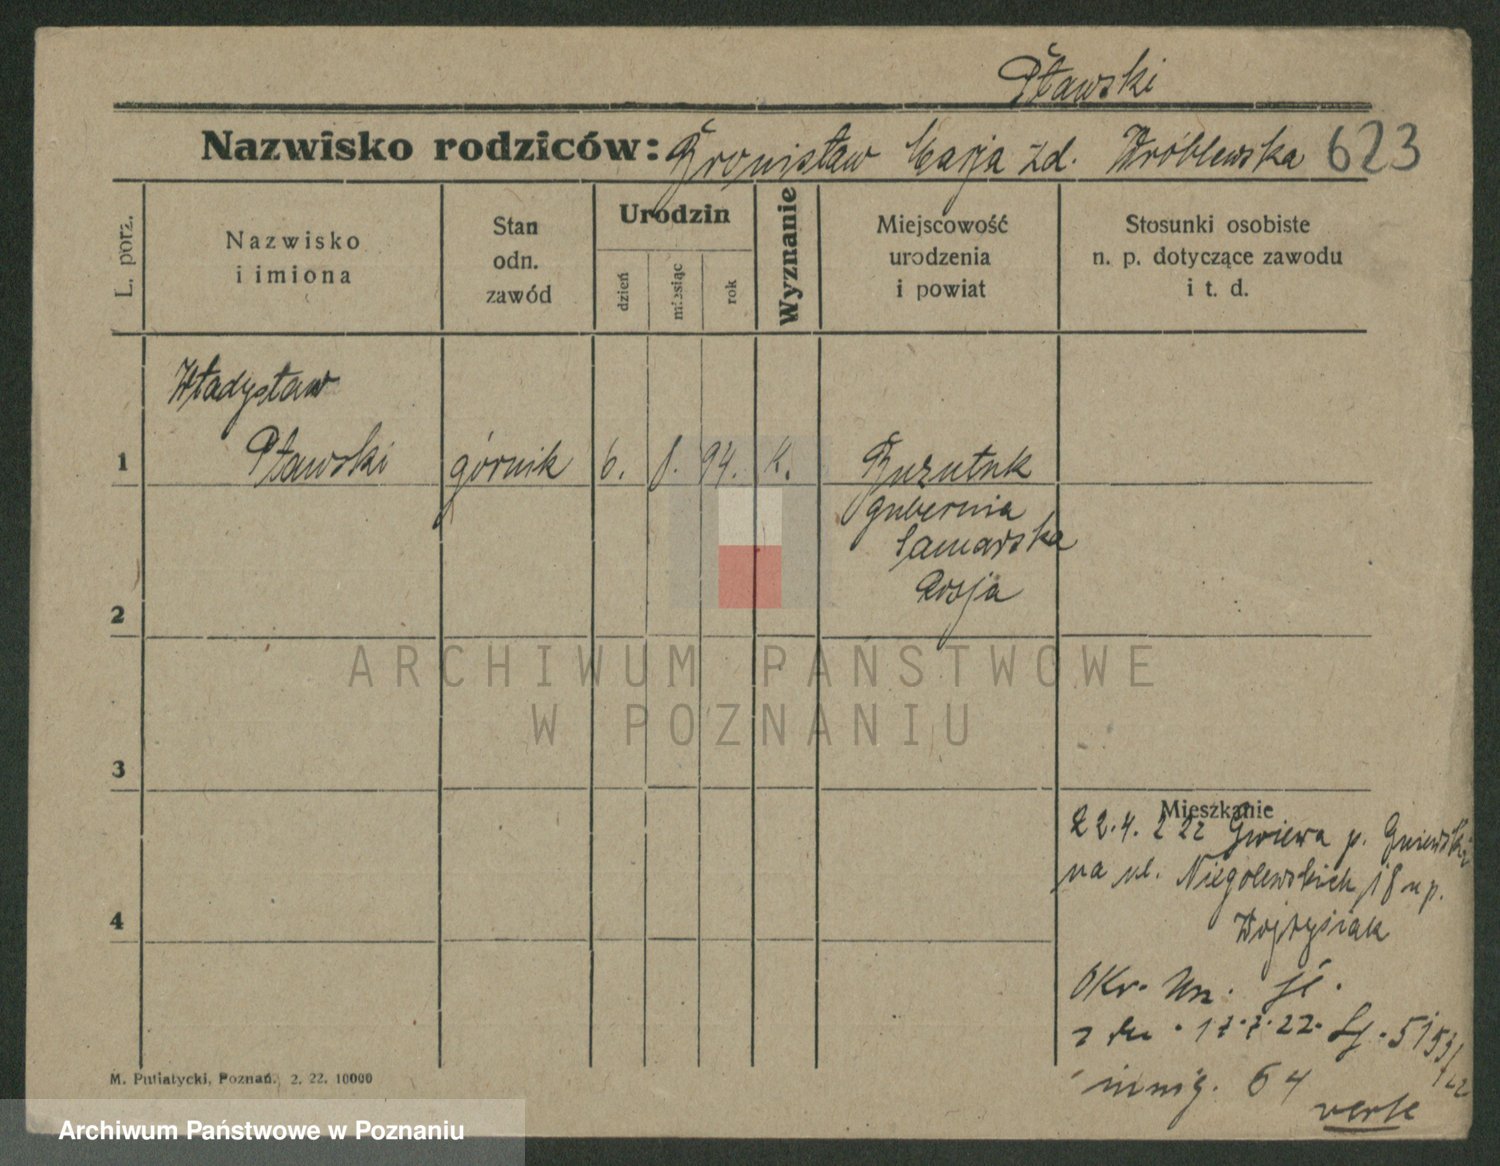 Pławski
Nazwisko rodziców: Bronisław Marja zd. Wróblewska 623
L. porz.
Nazwisko
i imiona
Stan
odn.
zawód
Urodzin
dzień
miesiąc
rok
Wyznanie
Miejscowość
urodzenia
i powiat
Stosunki osobiste
n. p. dotyczące zawodu
i t. d.
Władysław
1 Pławski górnik 6. 8. 94. k.
gubernia
Samarska
2 Rosja
ARCHIWUM PAŃSTWOWE
W POZNANIU
3
Mieszkanie
22.4. 22 p.
na ul. Niegolewskich 18 u p.
4 Wojtysiak
Okr.
17.7.22. 5153/22
64
verte
M. Putiatycki, Poznań. 2. 22. 10000
Archiwum Państwowe w Poznaniu